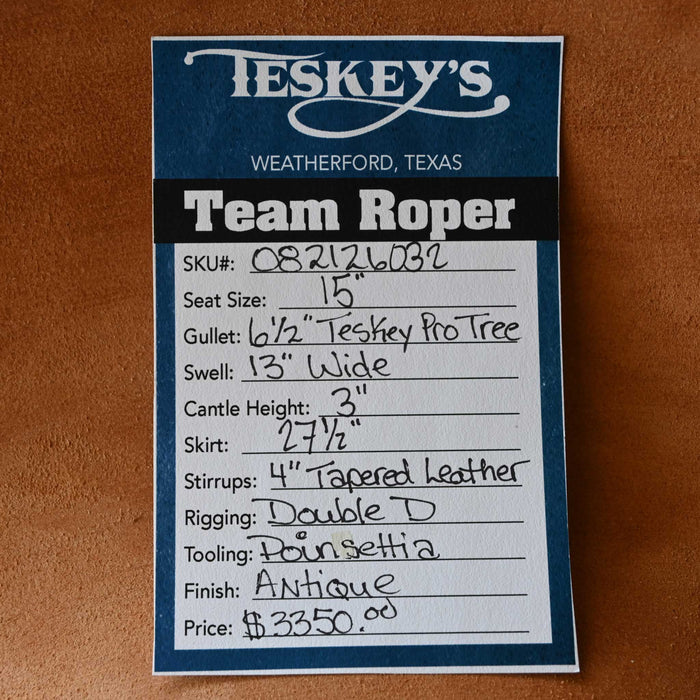 TESKEY'S
WEATHERFORD, TEXAS
Team Roper
SKU#: 082126032
Seat Size: 15"
Gullet: 6½" Teskey Pro Tree
Swell: 13" Wide
Cantle Height: 3"
Skirt: 27½"
Stirrups: 4" Tapered Leather
Rigging: Double D
Tooling: Poinsettia
Finish: Antique
Price: $3350.00